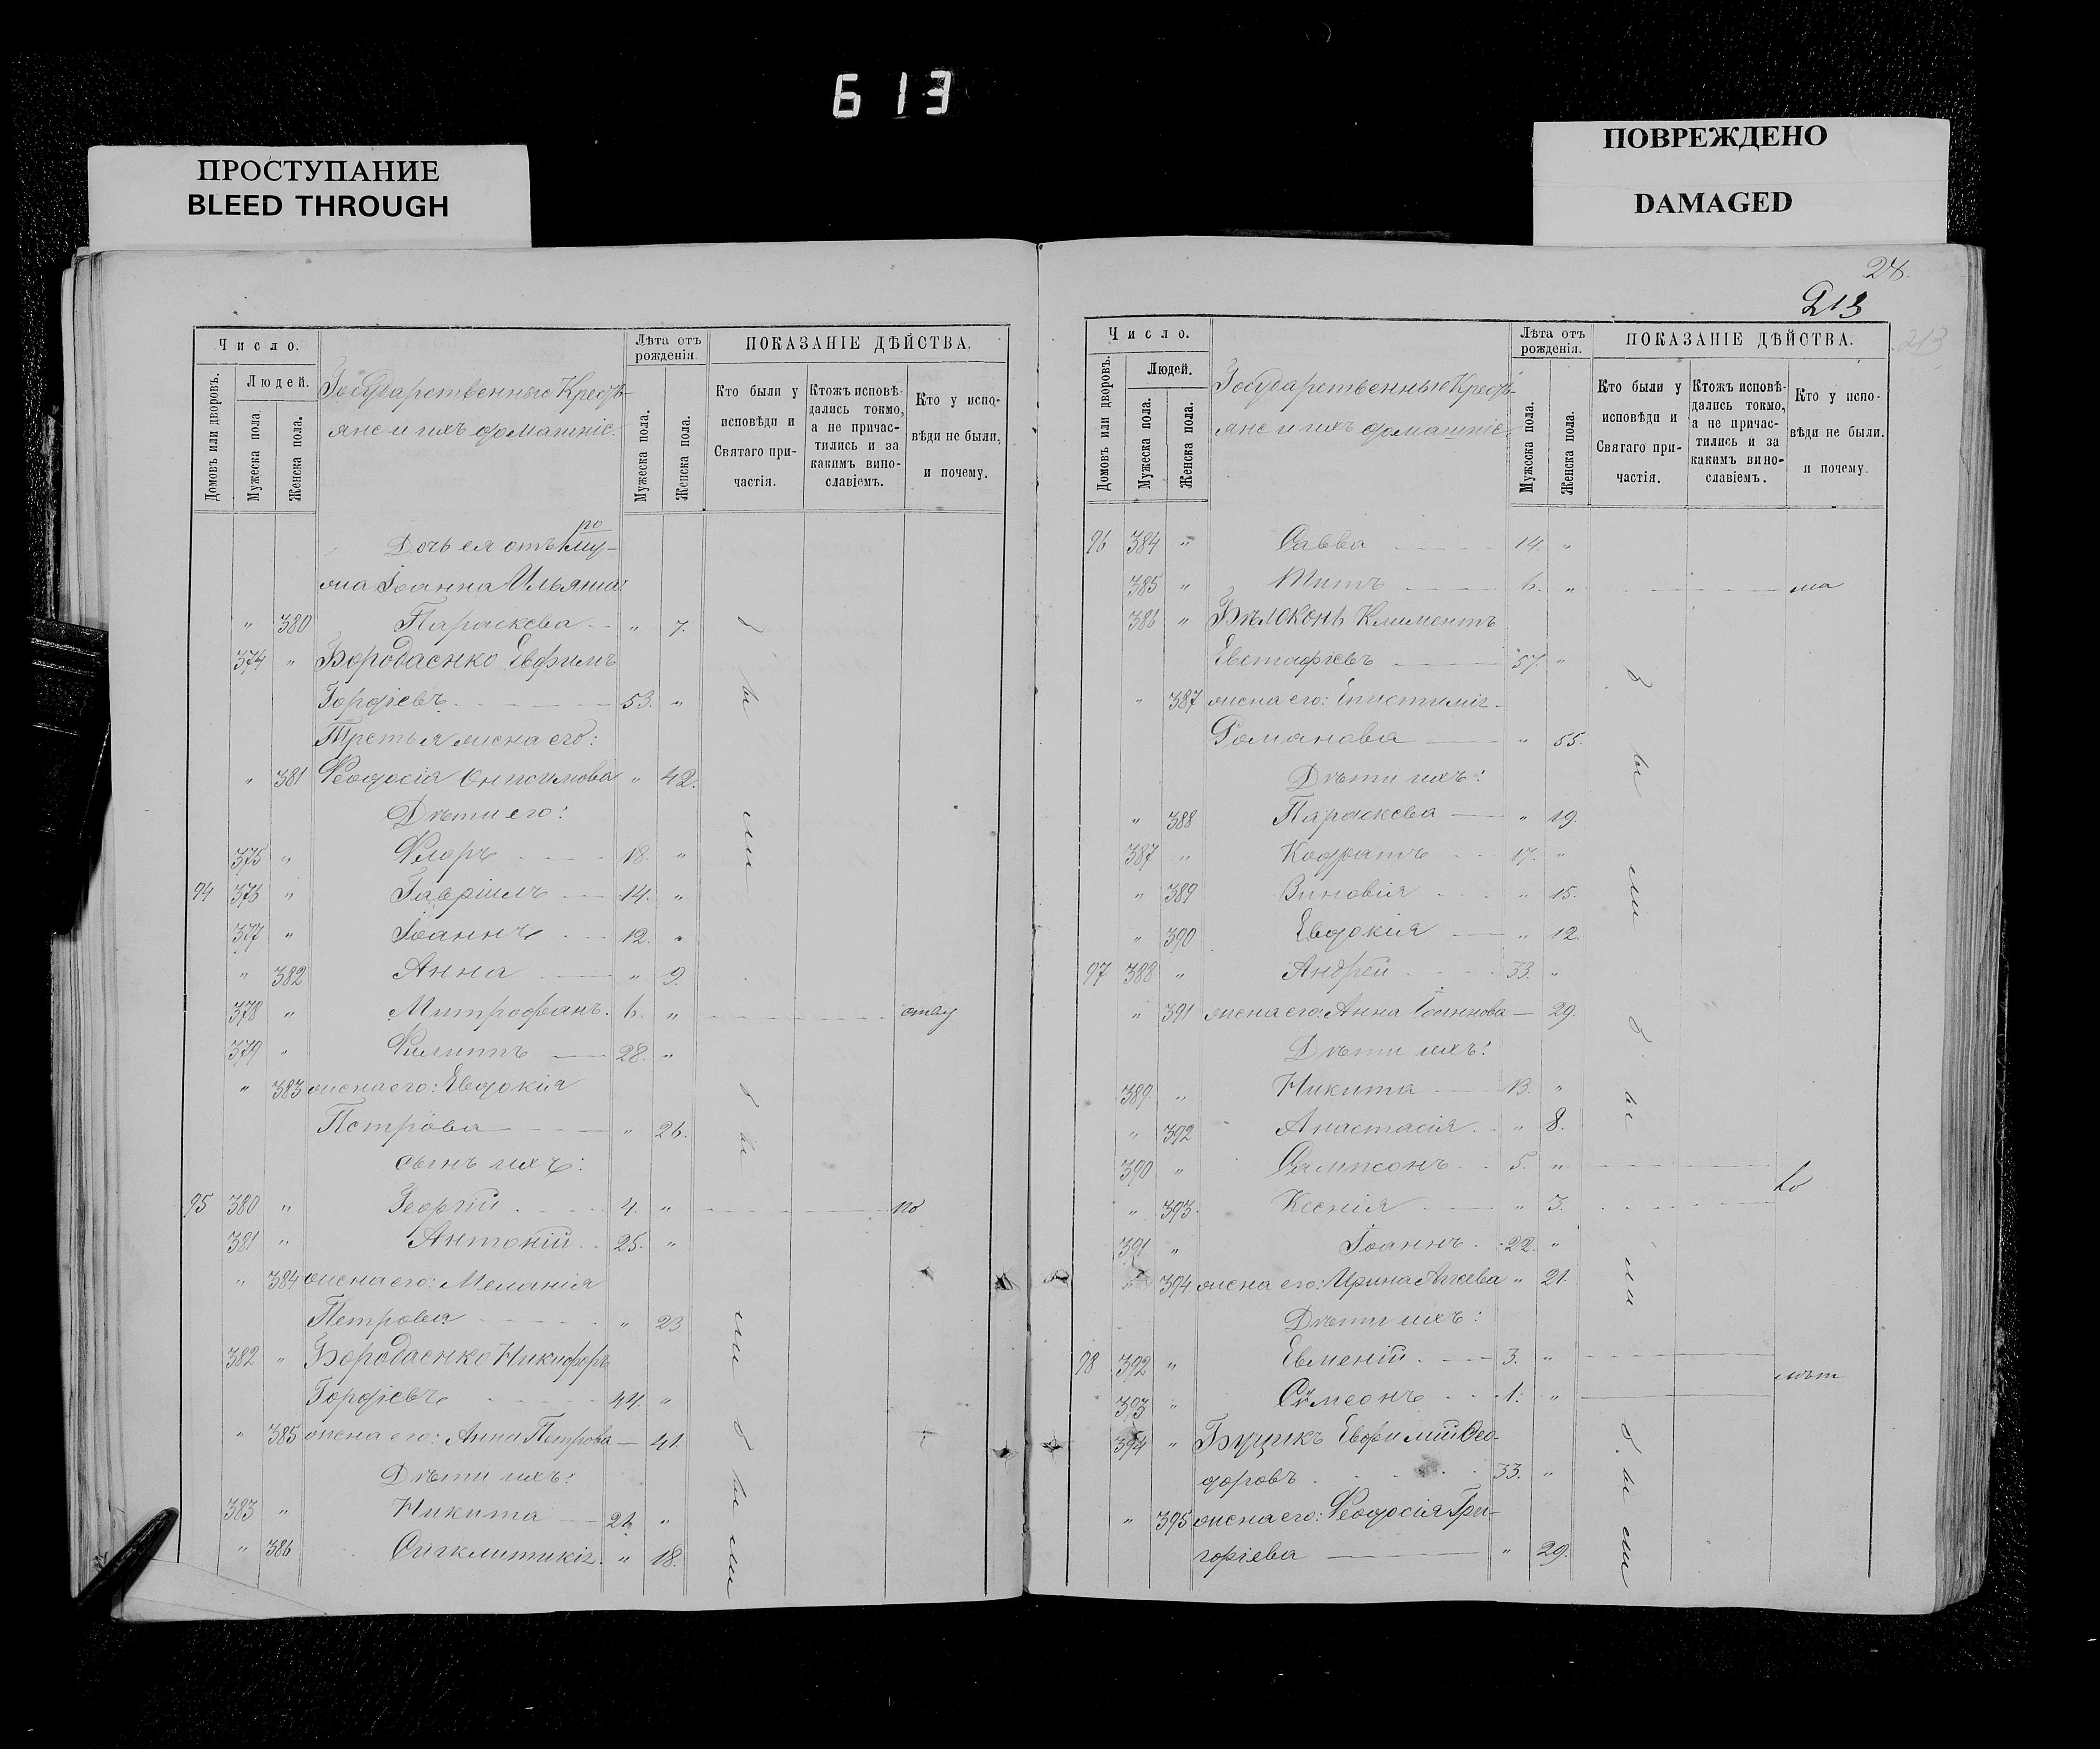 613
ПРОСТУПАНИЕ
BLEED THROUGH
ПОВРЕЖДЕНО
DAMAGED
Число.
Людей.
Домовъ или дворовъ.
Мужеска пола.
Женска пола.
Государственные Кресть-
яне и ихъ домашніе.
Лѣта отъ рожденія.
Мужеска пола.
Женска пола.
ПОКАЗАНІЕ ДѢЙСТВА.
Кто были у исповѣди и Святаго при-частія.
Ктожъ исповѣ-дались токмо, а не причас-тились и за какимъ вино-славіемъ.
Кто у испо-вѣди не были, и почему.
по
Дочь ея отъ 1 му-
жа Іоанна Ильяша:
" 380 Параскева " 7.
374 " Бородаенко Евфимъ
Гордіевъ 53. "
Третья жена его:
" 381 Ѳеодосія Онисимова " 42.
Дѣти его:
375 " Флоръ 18. "
94 376 " Гавріилъ 14. "
377 " Іоаннъ 12. "
" 382 Анна " 9.
378 " Митрофанъ. 6. " отлу
379 " Филиппъ 28. "
" 383 жена его: Евдокія
Петрова " 26.
сынъ ихъ:
95 380 " Георгій 4. " по
381 " Антоній 25. "
" 384 жена его: Меланія
Петрова " 23
382 " Бородаенко Никифоръ
Гордіевъ 44. "
" 385 жена его: Анна Петрова — 41.
Дѣти ихъ:
383 " Никита 21. "
" 386 Сигклитикія. " 18.
бы
ли
бы
ли
бы
ли
24.
213
213
Число.
Людей.
Домовъ или дворовъ.
Мужеска пола.
Женска пола.
Государственные Кресть-
яне и ихъ домашніе.
Лѣта отъ рожденія.
Мужеска пола.
Женска пола.
ПОКАЗАНІЕ ДѢЙСТВА.
Кто были у исповѣди и Святаго при-частія.
Ктожъ исповѣ-дались токмо, а не причас-тились и за какимъ вино-славіемъ.
Кто у испо-вѣди не были. и почему.
96 384 " Савва 14. "
385 " Титъ 6. " ма
386 " Бѣлоконь Климентъ
Евстафіевъ 57. "
" 387 жена его: Епистимія
Романова " 55.
Дѣти ихъ:
" 388 Параскева " 19.
387 " Кодратъ 17. "
" 389 Зиновія " 15.
" 390 Евдокія " 12.
97 388 " Андрей 33. "
" 391 жена его: Анна Іоаннова — 29.
Дѣти ихъ:
389. " Никита 13. "
" 392 Анастасія " 8.
390 " Сампсонъ 5. "
" 393. Ксенія " 3.
391 " Іоаннъ 22. "
" 394 жена его: Ирина Агеева " 21.
Дѣти ихъ:
98 392 " Евменій 3. "
393 " Сѵмеонъ 1. "
394 " Буцикъ Евфимій Ѳео-
доровъ 33. "
" 395 жена его: Ѳеодосія Гри-
горіева " 29.
бы
ли
бы
ли
бы
ли
лѣт